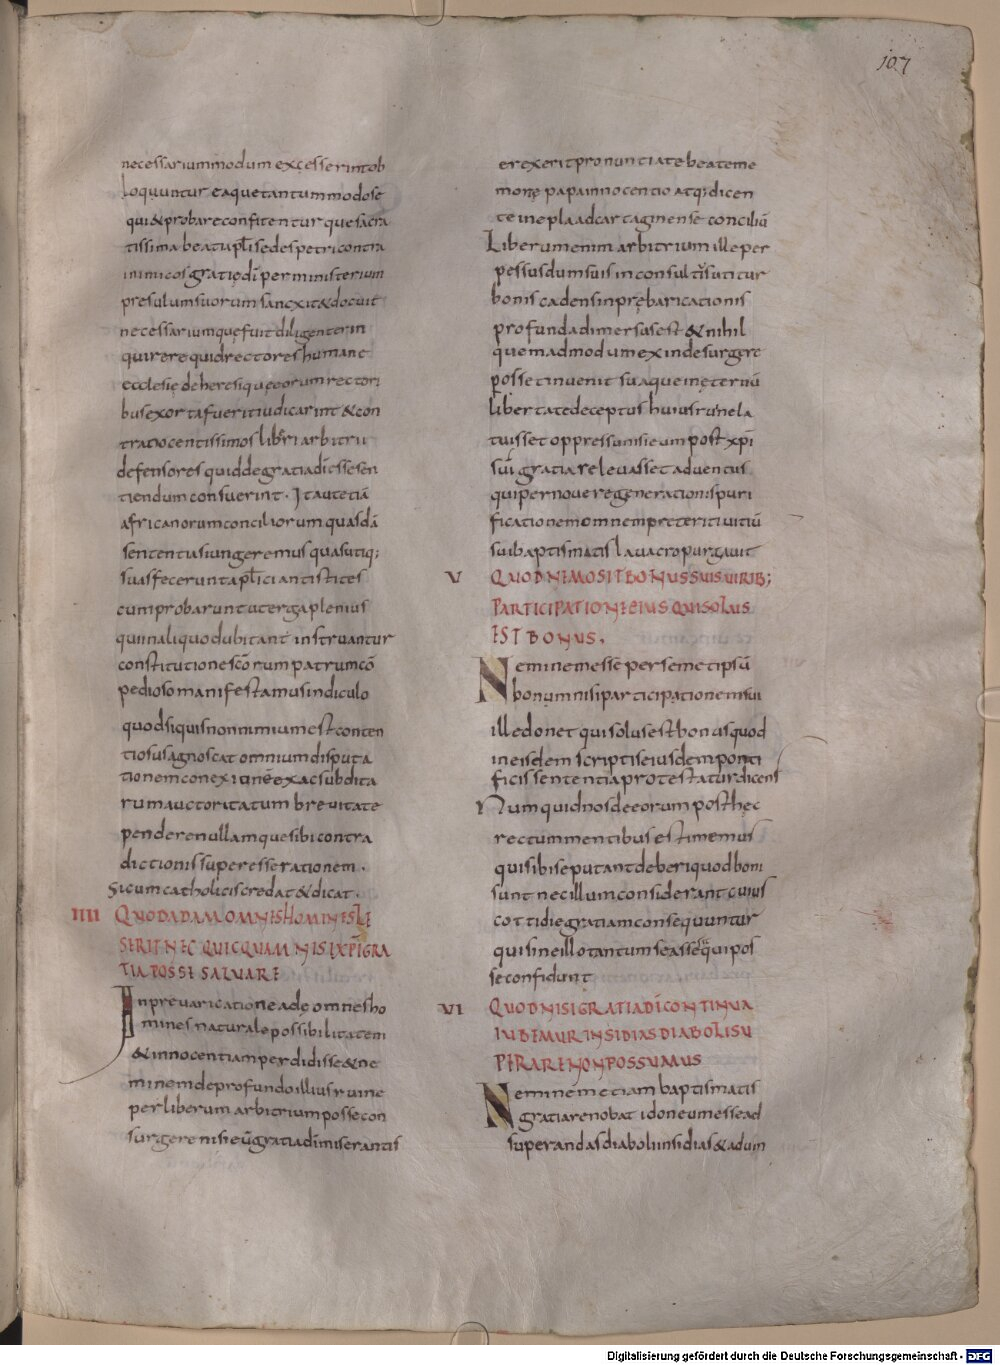 107
necessarium modum excesserint ob
loquuntur ea que tantummodo se
qui & probare confitentur que sacra
tissima beati apłi sedes petri contra
inimicos gratię dī per ministerium
presulum suorum sancxit & docuit
necessariumquę fuit diligenter in
quirere quid rectores humane
ecclesię de heresi quę eorum rectori
bus exorta fuerit iudicarint & con
tra nocentissimos liberi arbitrii
defensores quid de gratia dī esse sen
tiendum consuerint. Ita ut etiā
africanorum conciliorum quasdā
sententias iungeremus quas utiq;
suas fecerunt apłici antistites
cum probarunt ut ergo plenius
qui in aliquo dubitant instruantur
constitutiones scōrum patrum cō
pedioso manifestamus indiculo
quod si quis non nimium est conten
tiosus agnoscat omnium disputa
tionem conexionē ex ac subdita
rum auctoritatum brevitate
pendere nullamque sibi contra
dictionis superesse rationem.
Si cum catholicis credat & dicat.
IIII QUOD ADAM OMNES HOMINES LE
SERIT NEC QUICQUAM NISI XPI GRA
TIA POSSE SALVARE
In prevaricatione adę omnes ho
mines naturale possibilitatem
& innocentiam perdidisse & ne
minem de profundo illius ruine
per liberum arbitrium posse con
surgere nisi eū gratia dī miserantis
erexerit pronuntiate beate me
morię papa innocentio atq; dicen
te in epła ad cartaginense conciliū
Liberum enim arbitrium ille per
pessus dum suis inconsultis utitur
bonis cadens in pręvaricationis
profunda dimersus est & nihil
quemadmodum exinde surgere
posset invenit suaque in ęternū
libertate deceptus huius ruine la
tuisset oppressu nisi eum post xp̄i
sui gratia relevasset adventus
qui per nove regenerationis puri
ficationem omnem preteritū vitiū
sui baptismatis lavacro purgavit
V QUOD NEMO SIT BONUS SUIS VIRIB;
PARTICIPATIONE EIUS QUI SOLUS
EST BONUS.
Neminem esse per semetipsū
bonum nisi participationem sui
ille donet qui solus est bonus quod
in eisdem scriptis eiusdem ponti
ficis sententia protestatur dicens
Numquid nos de eorum posthęc
rectum mentibus estimemus
qui sibi se putant deberi quod boni
sunt nec illum considerant cuius
cottidie gratiam consequuntur
qui sine illo tantum se assequi pos
se confidunt
VI QUOD NISI GRATIA DI CONTINUA
IUBEMUR INSIDIAS DIABOLI SU
PERARE NON POSSUMUS
Neminem etiam baptismatis
gratia renobat idoneum esse ad
superandas diaboli insidias & ad uin
Digitalisierung gefördert durch die Deutsche Forschungsgemeinschaft - DFG